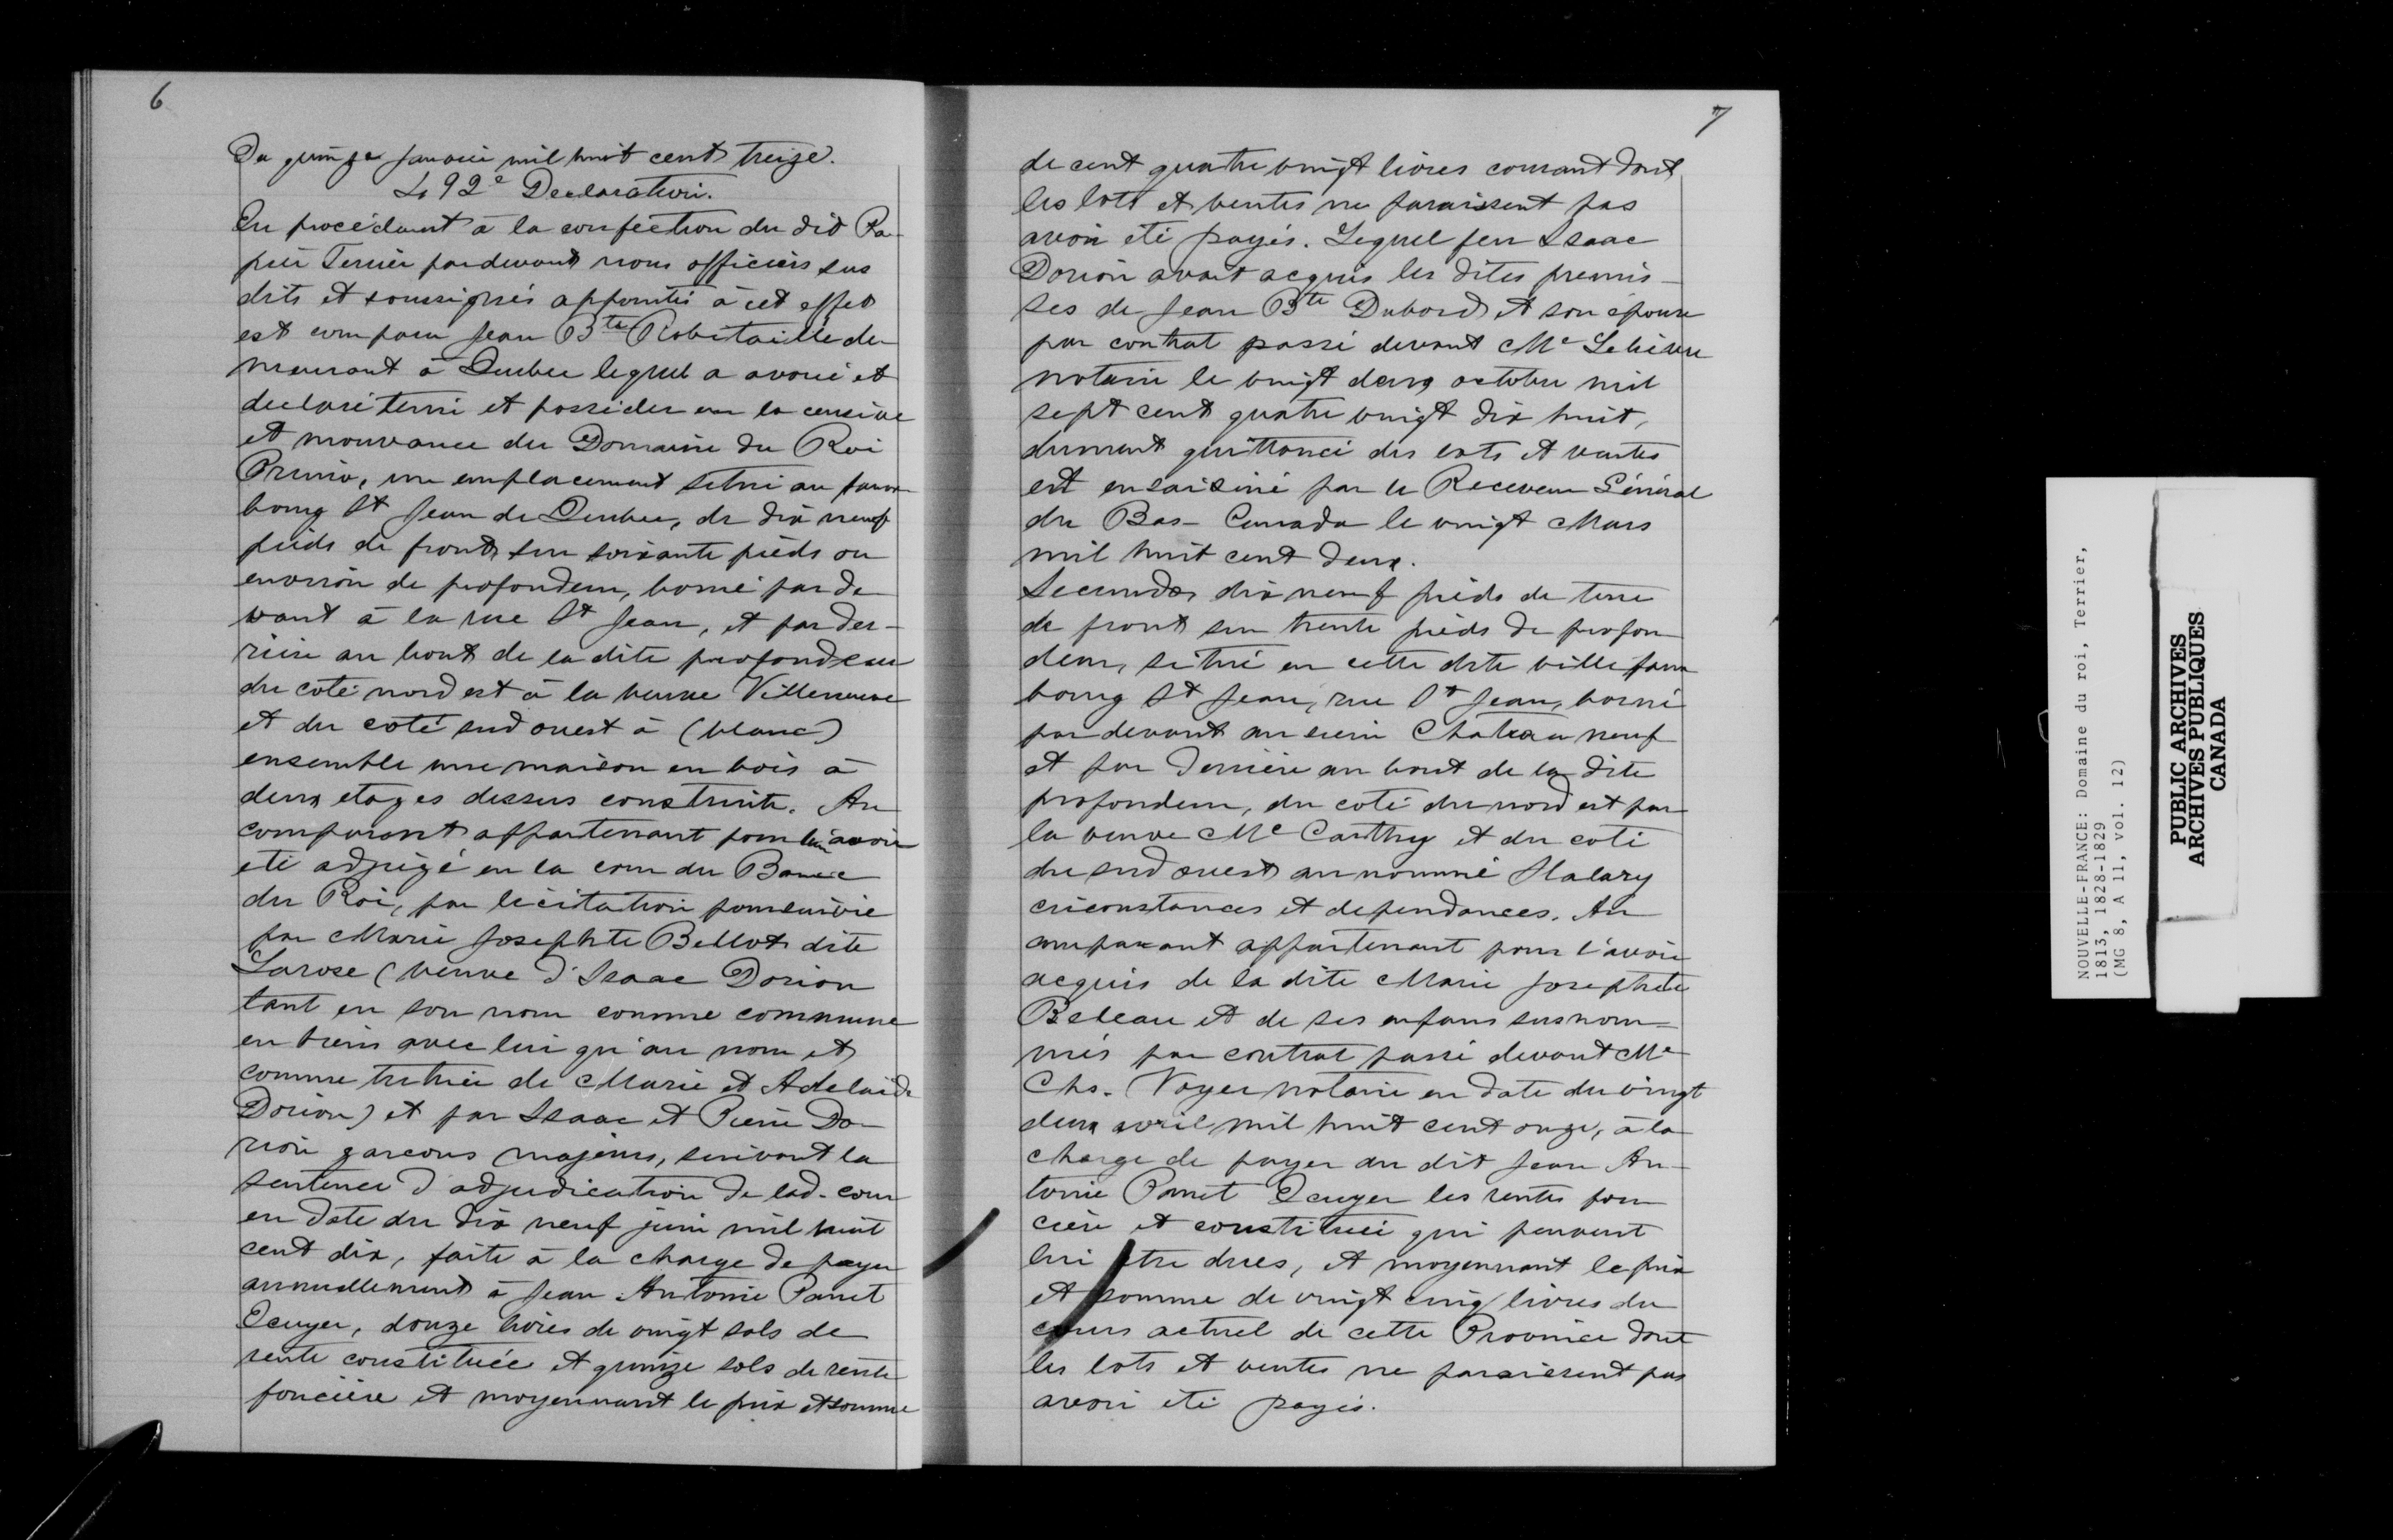 6
Du quinze Janvier mil huit cent treize.
La 92e Declaration.
En procédant à la confection du dit Pa-
pier Terrier pardevant nous officiers sus
dits et soussignés appointés à cet effet
est comparu Jean Bte Robitaille de-
meurant à Quebec lequel a avoué et
declaré tenir et posseder en la censive
et mouvance du Domaine du Roi
Primo, un emplacement situé au faux
bourg St Jean de Quebec, de dix neuf
pieds de front sur soixante pieds ou
environ de profondeur, borné par de
vant à la rue St Jean, et par der-
riere au bout de la dite profondeur
du coté nord est à la veuve Villeneuve
et du coté sud ouest à (blanc)
ensemble une maison en bois à
deux etages dessus construite. Au
comparant appartenant pour lui avoir
eté adjugé en la cour du Banc
du Roi, par licitation poursuivie
par Marie Josephte Bellot dite
Larose (veuve d'Isaac Dorion
tant en son nom comme commune
en biens avec lui qu'au nom et
comme tutrice de Marie et Adelaide
Dorion) et par Isaac et Pierre Do-
rion garcons majeurs, suivant la
sentence d'adjudication de lad. cour
en date du dix neuf juin mil huit
cent dix, faite à la charge de payer
annuellement à Jean Antoine Panet
Ecuyer, douze livres de vingt sols de
rente constituée et quinze sols de rente
foncière et moyennant le prix et somme
7
de cent quatre vingt livres courant dont
les lots et ventes ne paraissent pas
avoir eté payés. Lequel feu Isaac
Dorion avait acquis les dites premis-
ses de Jean Bte Dubord et son épouse
par contrat passé devant Me Lelièvre
notaire le vingt deux octobre mil
sept cent quatre vingt dix huit,
dument quittancé des lots et ventes
et ensaisiné par le Receveur Général
du Bas-Canada le vingt Mars
mil huit cent deux.
Secundo, dix neuf pieds de terre
de front sur trente pieds de profon
deur, situé en cette dite ville faux
bourg St Jean, rue St Jean, borné
par devant au sieur Chateau neuf
et par derrière au bout de la dite
profondeur, du coté du nord est par
la veuve Mc Carthy et du coté
du sud ouest au nommé Halary
circonstances et dependances. Au
comparant appartenant pour l'avoir
acquis de la dite Marie Josephte
Beleau et de ses enfans susnom-
més par contrat passé devant Me
Chs. Voyer notaire en date du vingt
deux avril mil huit cent onze, à la
charge de payer au dit Jean An-
toine Panet Ecuyer les rentes fon
cière et constituée qui peuvent
lui etre dues, et moyennant le prix
et somme de vingt cinq livres du
cours actuel de cette Province dont
les lots et ventes ne paraissent pas
avoir eté payés.
NOUVELLE-FRANCE: Domaine du roi, Terrier,
1813, 1828-1829
(MG 8, A 11, vol. 12)
PUBLIC ARCHIVES
ARCHIVES PUBLIQUES
CANADA